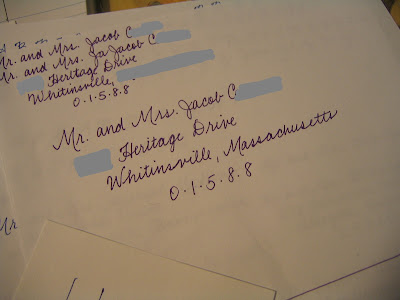 Mr. and Mrs. Jacob C
Mr. and Mrs. JaJacob C
Heritage Drive
Whitinsville,
0.1.5.8.8
Mr. and Mrs. Jacob C
Heritage Drive
Whitinsville, Massachusetts
0.1.5.8.8
Mr